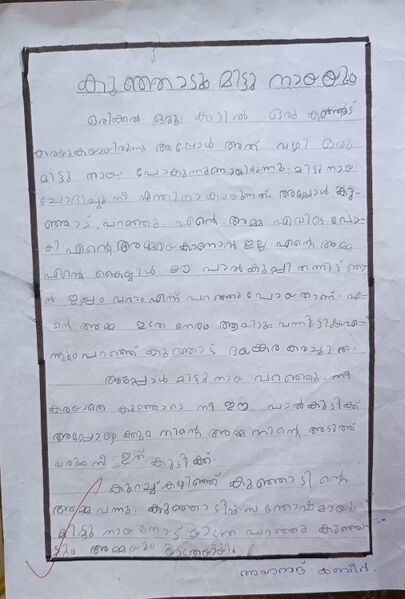 കുഞ്ഞാടും മിട്ടു നായയും
ഒരിക്കൽ ഒരു കാട്ടിൽ ഒരു കുഞ്ഞാട്
കരയുകയായിരുന്നു അപ്പോൾ അത് വഴി ഒരു
മിട്ടു നായ പോകുന്നുണ്ടായിരുന്നു. മിട്ടു നായ
ചോദിച്ചു നീ എന്തിനാ കരയുന്നത്. അപ്പോൾ കു-
ഞ്ഞാട് പറഞ്ഞു. എൻ്റെ അമ്മ എവിടെ പോ-
യി എൻ്റെ അമ്മയെ കാണാൻ ഇല്ല. എൻ്റെ അമ്മ
എൻ്റെ കൈയ്യിൽ ഈ പാൽകുപ്പി തന്നിട്ട് ഞാ
ൻ ഇപ്പം വരാം എന്ന് പറഞ്ഞു പോയതാണ്. എ-
ൻ്റെ അമ്മ ഇത്ര നേരം ആയിട്ടും വന്നിട്ടില്ല. എ-
ന്നും പറഞ്ഞ് കുഞ്ഞാട് ഭയങ്കര കരച്ചിൽ.
അപ്പോൾ മിട്ടു നായ പറഞ്ഞു. നീ
കരയാതെ കുഞ്ഞാടെ നീ ഈ പാൽ കുടിക്ക്
അപ്പോഴേക്കും നിൻ്റെ അമ്മ നിൻ്റെ അടുത്ത്
വരും നീ ഇത് കുടിക്ക്.
കുറച്ച് കഴിഞ്ഞ് കുഞ്ഞാടിൻ്റെ
അമ്മ വന്നു. കുഞ്ഞാടിന് സന്തോഷമായി.
മിട്ടു നായനോട് യാത്ര പറഞ്ഞു കുഞ്ഞാ-
ടും അമ്മയും യാത്രയായി.